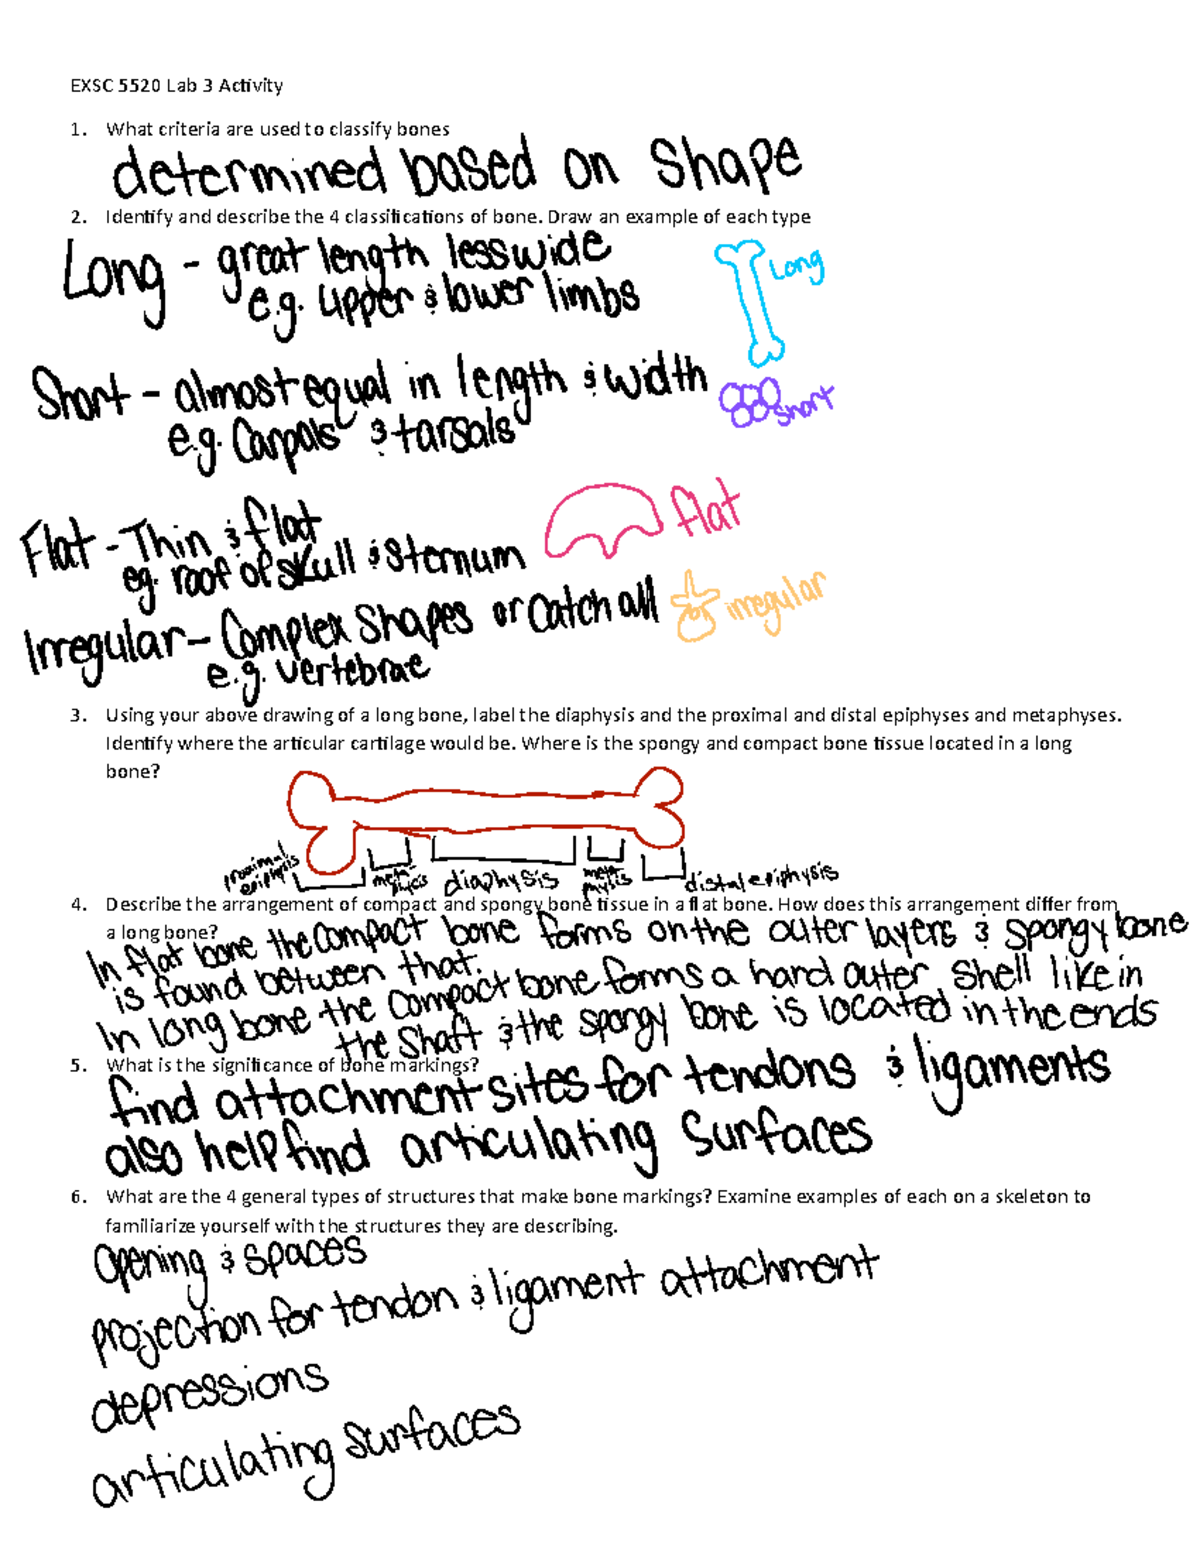 EXSC 5520 Lab 3 Activity
1. What criteria are used to classify bones
determined based on shape
2. Identify and describe the 4 classifications of bone. Draw an example of each type
Long - great length less wide
e.g. upper & lower limbs
Long
Short - almost equal in length & width
e.g. Carpals & tarsals
short
Flat - Thin & flat
eg. roof of skull & sternum
flat
Irregular - Complex Shapes or catch all
e.g. vertebrae
irregular
3. Using your above drawing of a long bone, label the diaphysis and the proximal and distal epiphyses and metaphyses.
Identify where the articular cartilage would be. Where is the spongy and compact bone tissue located in a long
bone?
proximal
epiphysis
diaphysis
distal epiphysis
4. Describe the arrangement of compact and spongy bone tissue in a flat bone. How does this arrangement differ from
a long bone?
In flat bone the compact bone forms on the outer layers & spongy bone
is found between that.
In long bone the compact bone forms a hard outer shell like in
the shaft & the spongy bone is located in the ends
5. What is the significance of bone markings?
find attachment sites for tendons & ligaments
also help find articulating surfaces
6. What are the 4 general types of structures that make bone markings? Examine examples of each on a skeleton to
familiarize yourself with the structures they are describing.
Opening & spaces
projection for tendon & ligament attachment
depressions
articulating surfaces